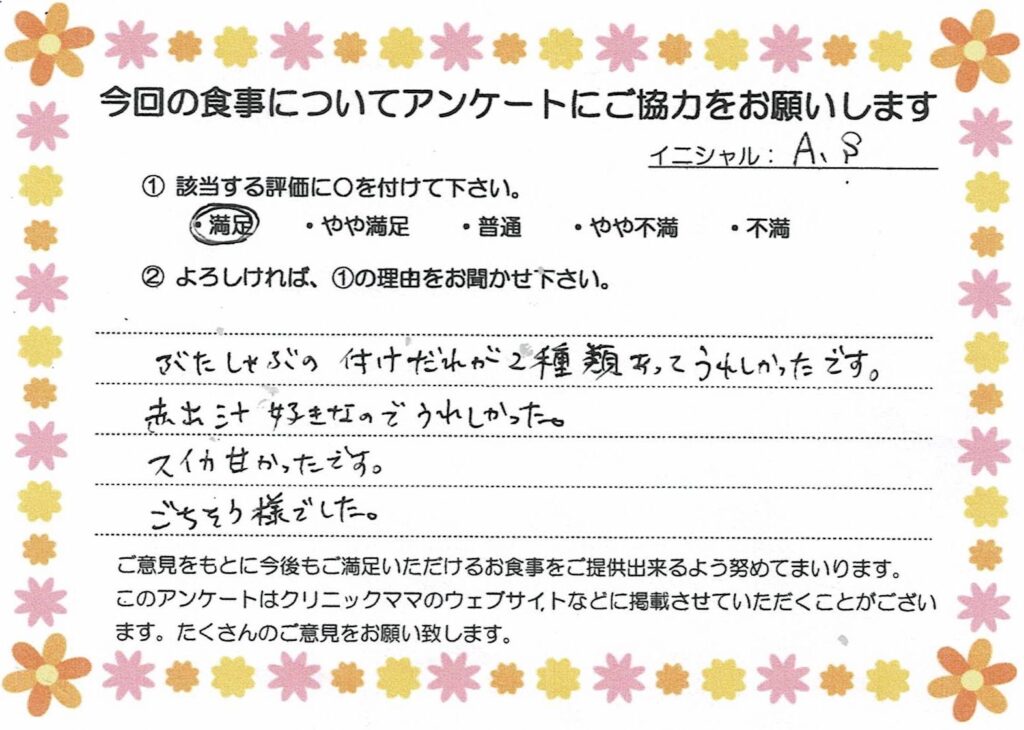 今回の食事についてアンケートにご協力をお願いします
イニシャル： A、S
① 該当する評価に〇を付けて下さい。
・満足 ・やや満足 ・普通 ・やや不満 ・不満
② よろしければ、①の理由をお聞かせ下さい。
ぶたしゃぶの 付けだれが2種類あってうれしかったです。
赤出汁好きなのでうれしかった。
スイカ甘かったです。
ごちそう様でした。
ご意見をもとに今後もご満足いただけるお食事をご提供出来るよう努めてまいります。
このアンケートはクリニックママのウェブサイトなどに掲載させていただくことがござい
ます。たくさんのご意見をお願い致します。